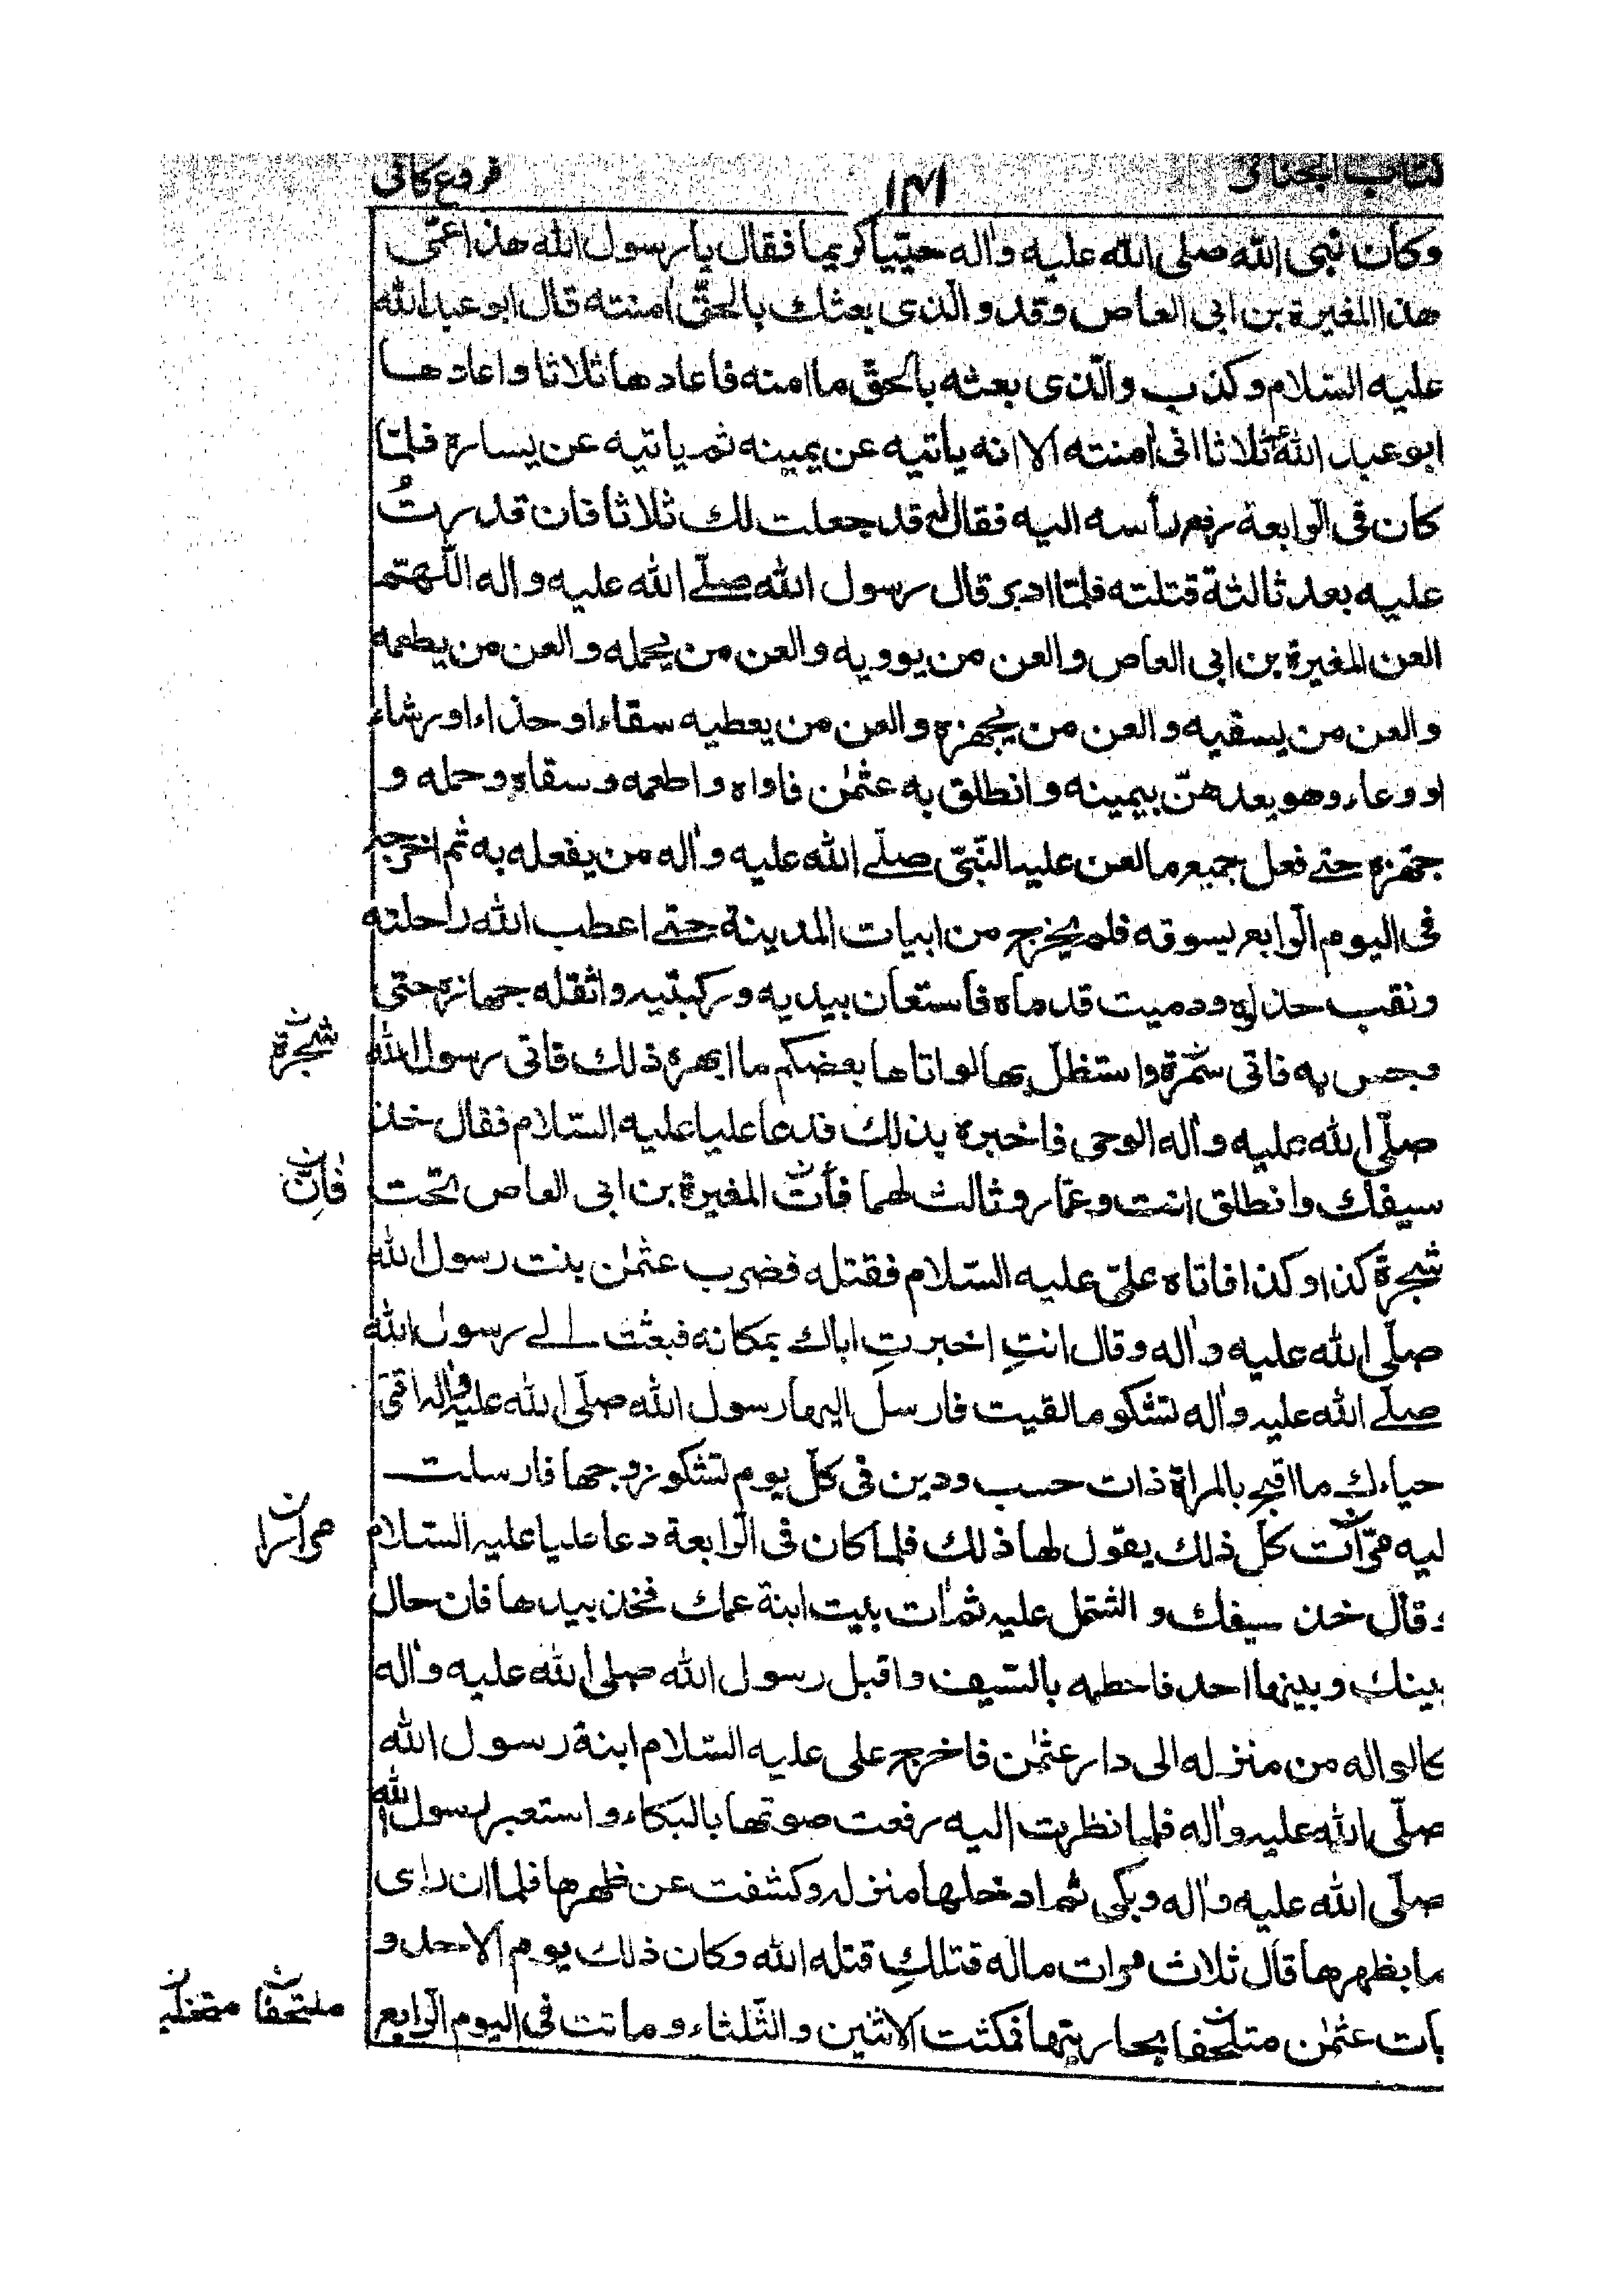 كتاب الجنائز
١٣١
فروع كافى
وكان نبى الله صلى الله عليه واله حيّيا كريما فقال يا رسول الله هذا عمّى
هذا المغيرة بن ابى العاص وقد والّذى بعثك بالحقّ امنته قال ابو عبد الله
عليه السّلام وكذب والّذى بعثه بالحقّ ما امنه فاعادها ثلاثا واعادها
ابو عبد الله ثلاثا انى امنته الا انه ياتيه عن يمينه ثم ياتيه عن يساره فلمّا
كان فى الرّابعة رفع رأسه اليه فقال له قد جعلت لك ثلاثا فان قدرتُ
عليه بعد ثالثة قتلته فلمّا ادبر قال رسول الله صلّے الله عليه واله اللّهمّ
العن المغيرة بن ابى العاص والعن من يوويه والعن من يحمله والعن من يطعمه
والعن من يسقيه والعن من يجهزه والعن من يعطيه سقاء او حذاء او رشاء
او وعاء وهو يعدهنّ بيمينه وانطلق به عثمٰن فاواه واطعمه وسقاه وحمله و
جهّزه حتے فعل جميع ما لعن عليه النّبىّ صلّے الله عليه واله من يفعله به ثم اخرجه
فى اليوم الرّابع يسوقه فلم يخرج من ابيات المدينة حتے اعطب الله راحلته
ونقب حذاه ودميت قدماه فاستعان بيديه وركبتيه واثقله جهازه حتى
وجس به فاتى سمرة واستظلّ بها لو اتاها بعضكم ما ابهره ذلك فاتى رسول الله
شجرة ن
صلّى الله عليه واله الوحى فاخبره بذلك فدعا عليا عليه السّلام فقال خذ
سيفك وانطلق انت وعمّار وثالث لهما فأت المغيرة بن ابى العاص تحت
فانّ ن
شجرة كذا وكذا فاتاه علىّ عليه السّلام فقتله فضرب عثمٰن بنت رسول الله
صلّى الله عليه واله وقال انتِ اخبرتِ اباك بمكانه فبعثت الے رسول الله
صلّے الله عليه واله تشكو ما لقيت فارسل اليها رسول الله صلّى الله عليه واله اقنى
حياءك ما اقبح بالمراة ذات حسب ودين فى كلّ يوم تشكو زوجها فارسلت
ليه مرّات كلّ ذلك يقول لها ذلك فلما كان فى الرّابعة دعا عليا عليه السّلام
مرارا ن
وقال خذ سيفك و اشتمل عليه ثم ات بيت ابنة عمك فخذ بيدها فان حال
بينك وبينها احد فاحطمه بالسّيف واقبل رسول الله صلى الله عليه واله
كالواله من منزله الى دار عثمٰن فاخرج على عليه السّلام ابنة رسول الله
صلّى الله عليه واله فلما نظرت اليه رفعت صوتها بالبكاء واستعبر رسول الله
صلّى الله عليه واله وبكى ثم ادخلها منزله وكشفت عن ظهرها فلما ان راى
ما بظهرها قال ثلاث مرات ماله قتلكِ قتله الله وكان ذلك يوم الاحد و
بات عثمٰن متلحّفا بجاريتها فمكثت الاثنين والثّلثاء وماتت فى اليوم الرّابع
ملتحفا ن